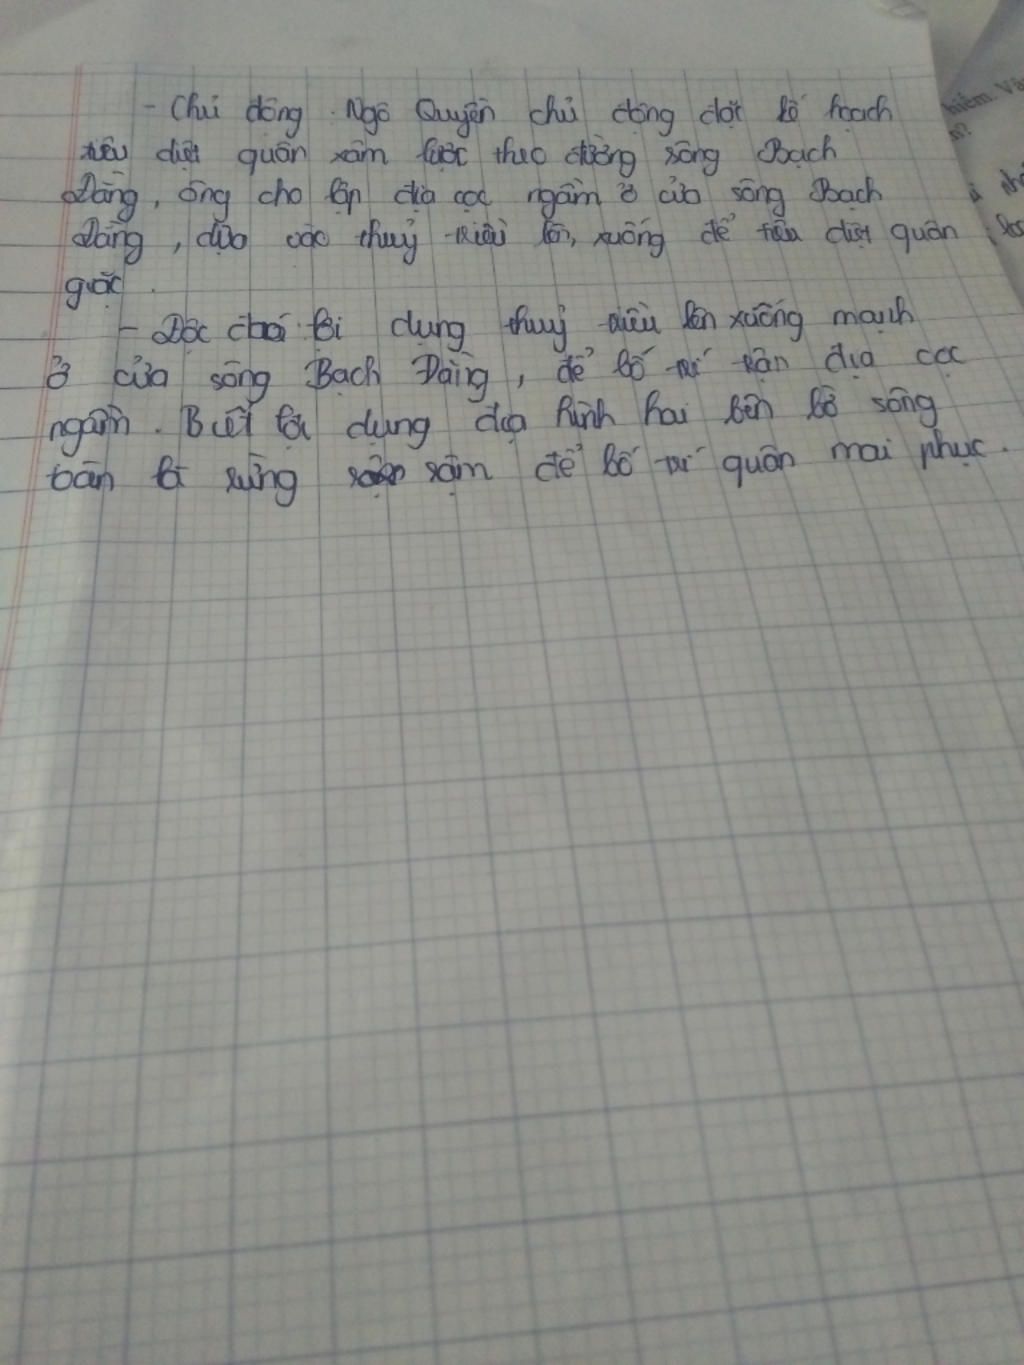 - Chủ động: Ngô Quyền chủ động đặt kế hoạch
tiêu diệt quân xâm lược theo đường sông Bạch
Đằng, ông cho lập địa cọc ngầm ở cửa sông Bạch
Đằng, dựa vào thuỷ triều lên, xuống để tiêu diệt quân
giặc.
- Độc đáo: lợi dụng thuỷ triều lên xuống mạnh
ở cửa sông Bạch Đằng, để bố trí trận địa cọc
ngầm. Biết lợi dụng địa hình hai bên bờ sông
toàn là rừng rậm để bố trí quân mai phục.
hiểm. Vă